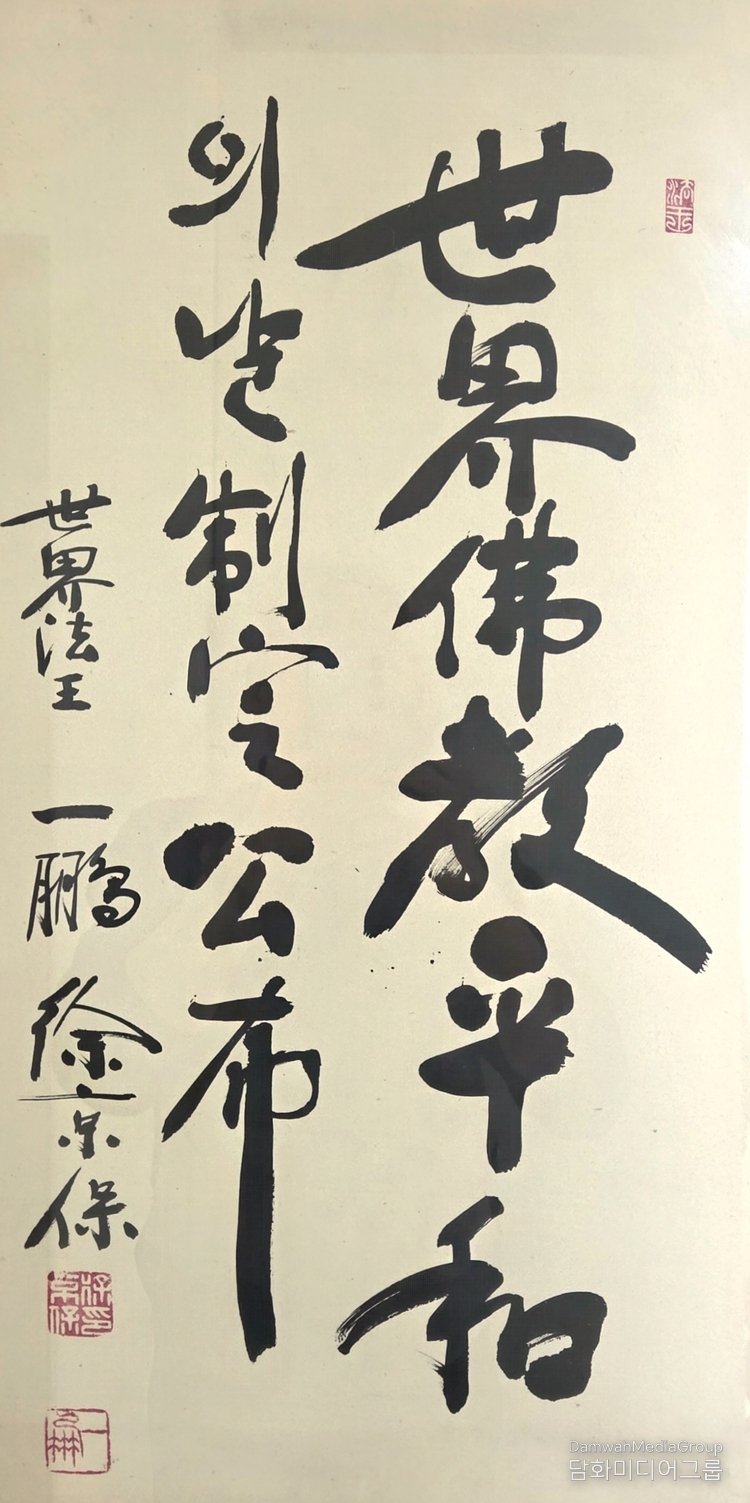 世界佛教平和
의날制定公布
世界法王 一鵬 徐京保
DamwhaMediaGroup
담화미디어그룹